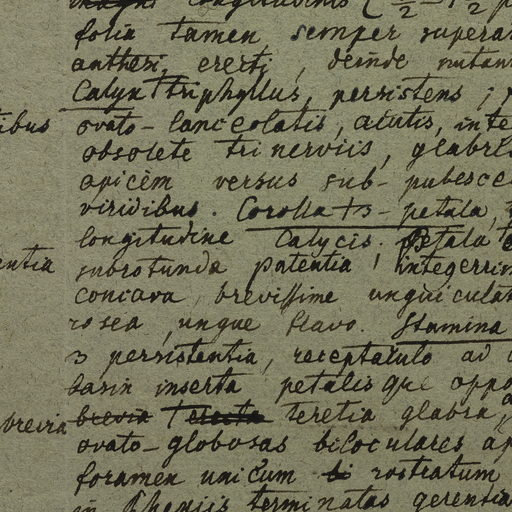 longitudinis (
folia tamen semper supera
antheri, erecti, deinde nutan
Calyx triphyllus, persistens;
ibus ovato-lanceolatis, acutis, inte
obsolete trinerviis, glabri
apicem versus sub-pubesce
viridibus. Corolla 3-petala,
longitudine Calycis. Petala
entia subrotunda patentia, integerrim
concava, brevissime unguiculat
rosea, ungue flavo. Stamina
3 persistentia, receptaculo ad
basin inserta petalisque oppo
brevia brevia erecta teretia glabra,
ovato-globosas biloculares ap
foramen unicum bi rostratum
in terminatas gerentia